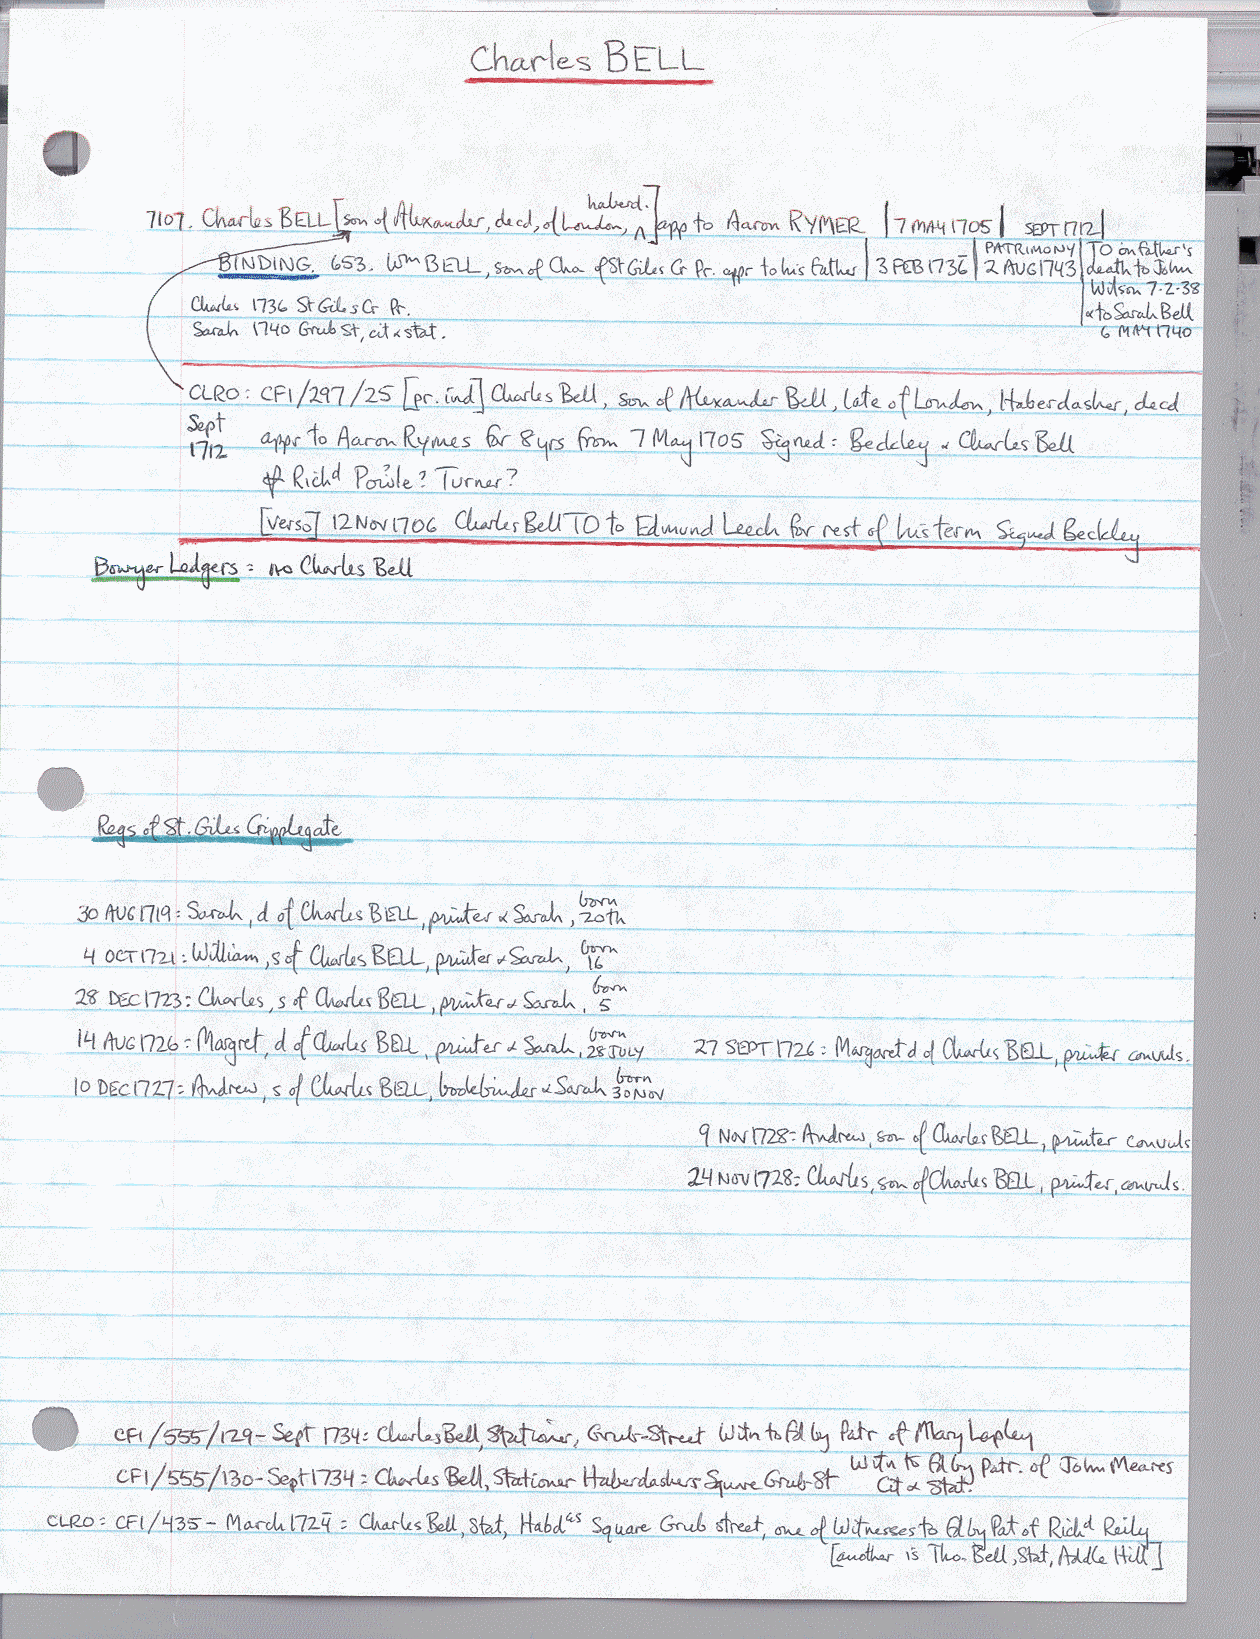 Charles BELL
haberd.
7107. Charles BELL [son of Alexander, decd, of London, ^] app to Aaron RYMER | 7 MAY 1705 | SEPT 1712 |
BINDING. 653. Wm BELL, son of Cha of St Giles Cr Pr. appr to his father | 3 FEB 1736 | PATRIMONY 2 AUG 1743 | TO on father's
death to John
Wilson 7-2-38
& to Sarah Bell
6 MAY 1740
Charles 1736 St Giles Cr Pr.
Sarah 1740 Grub St, cit & stat.
CLRO: CF1/297/25 [pr. ind] Charles Bell, son of Alexander Bell, late of London, Haberdasher, decd
Sept 1712 appr to Aaron Rymes for 8 yrs from 7 May 1705 Signed: Beckley & Charles Bell
Richd Powle? Turner?
[verso] 12 NOV 1706 Charles Bell TO to Edmund Leech for rest of his term Signed Beckley
Bowyer Ledgers: no Charles Bell
Regs of St. Giles Cripplegate
30 AUG 1719: Sarah, d of Charles BELL, printer & Sarah, born 20th
4 OCT 1721: William, s of Charles BELL, printer & Sarah, born 16
28 DEC 1723: Charles, s of Charles BELL, printer & Sarah, born 5
14 AUG 1726: Margret, d of Charles BELL, printer & Sarah, born 28 JULY
27 SEPT 1726: Margaret d of Charles BELL, printer convuls.
10 DEC 1727: Andrew, s of Charles BELL, bookbinder & Sarah born 30 NOV
9 NOV 1728: Andrew, son of Charles BELL, printer convuls
24 NOV 1728: Charles, son of Charles BELL, printer, convuls.
CF1/555/129 - Sept 1734: Charles Bell, Stationer, Grub-Street Witn to fd by Patr of Mary Lapley
CF1/555/130 - Sept 1734: Charles Bell, Stationer Haberdashers Square Grub-St Witn to fd by Patr. of John Meares
Cit & Stat.
CLRO: CF1/435 - March 1724: Charles Bell, Stat, Habdas Square Grub street, one of Witnesses to fd by Pat of Richd Reily
[another is Tho. Bell, Stat, Addle Hill]